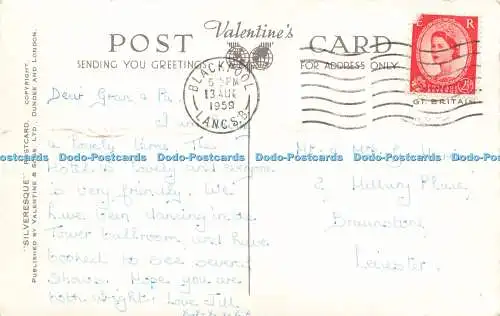 POST Valentine's CARD
SENDING YOU GREETINGS
FOR ADDRESS ONLY
"SILVERESQUE" POSTCARD. COPYRIGHT.
PUBLISHED BY VALENTINE & SONS, LTD., DUNDEE AND LONDON.
BLACKPOOL
5-PM
13 AUG
1959
LANCS.B.
E R
GT. BRITAIN
Dear Gran & Pa.
I am
a lovely time. The
Hotel is lovely and everyone
is very friendly. We
have been dancing in the
Tower ballroom, and have
booked to see several
shows. Hope you are
both alright. Love Jill
Mr & Mrs
2 Place,
Braunstone
Leicester.
Dodo-Postcards Dodo-Postcards Dodo-Postcards Dodo-Postcards Dodo-Postcards